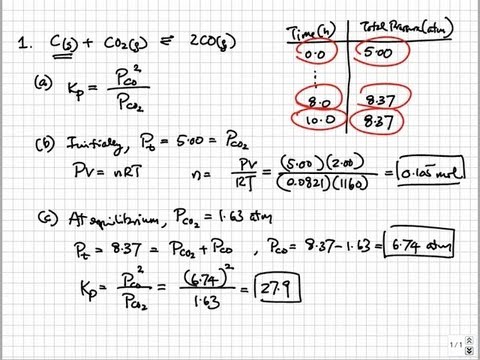 1. C(s) + CO₂(g) ⇌ 2CO(g)
Time(h) Total Pressure(atm)
0.0 5.00
⋮
8.0 8.37
10.0 8.37
(a) Kp = Pco² / Pco₂
(b) Initially, Pt = 5.00 = Pco₂
PV = nRT n = PV / RT = (5.00)(2.00) / (0.0821)(1160) = 0.105 mol
(c) At equilibrium, Pco₂ = 1.63 atm
Pt = 8.37 = Pco₂ + Pco , Pco = 8.37 - 1.63 = 6.74 atm
Kp = Pco² / Pco₂ = (6.74)² / 1.63 = 27.9
1/1